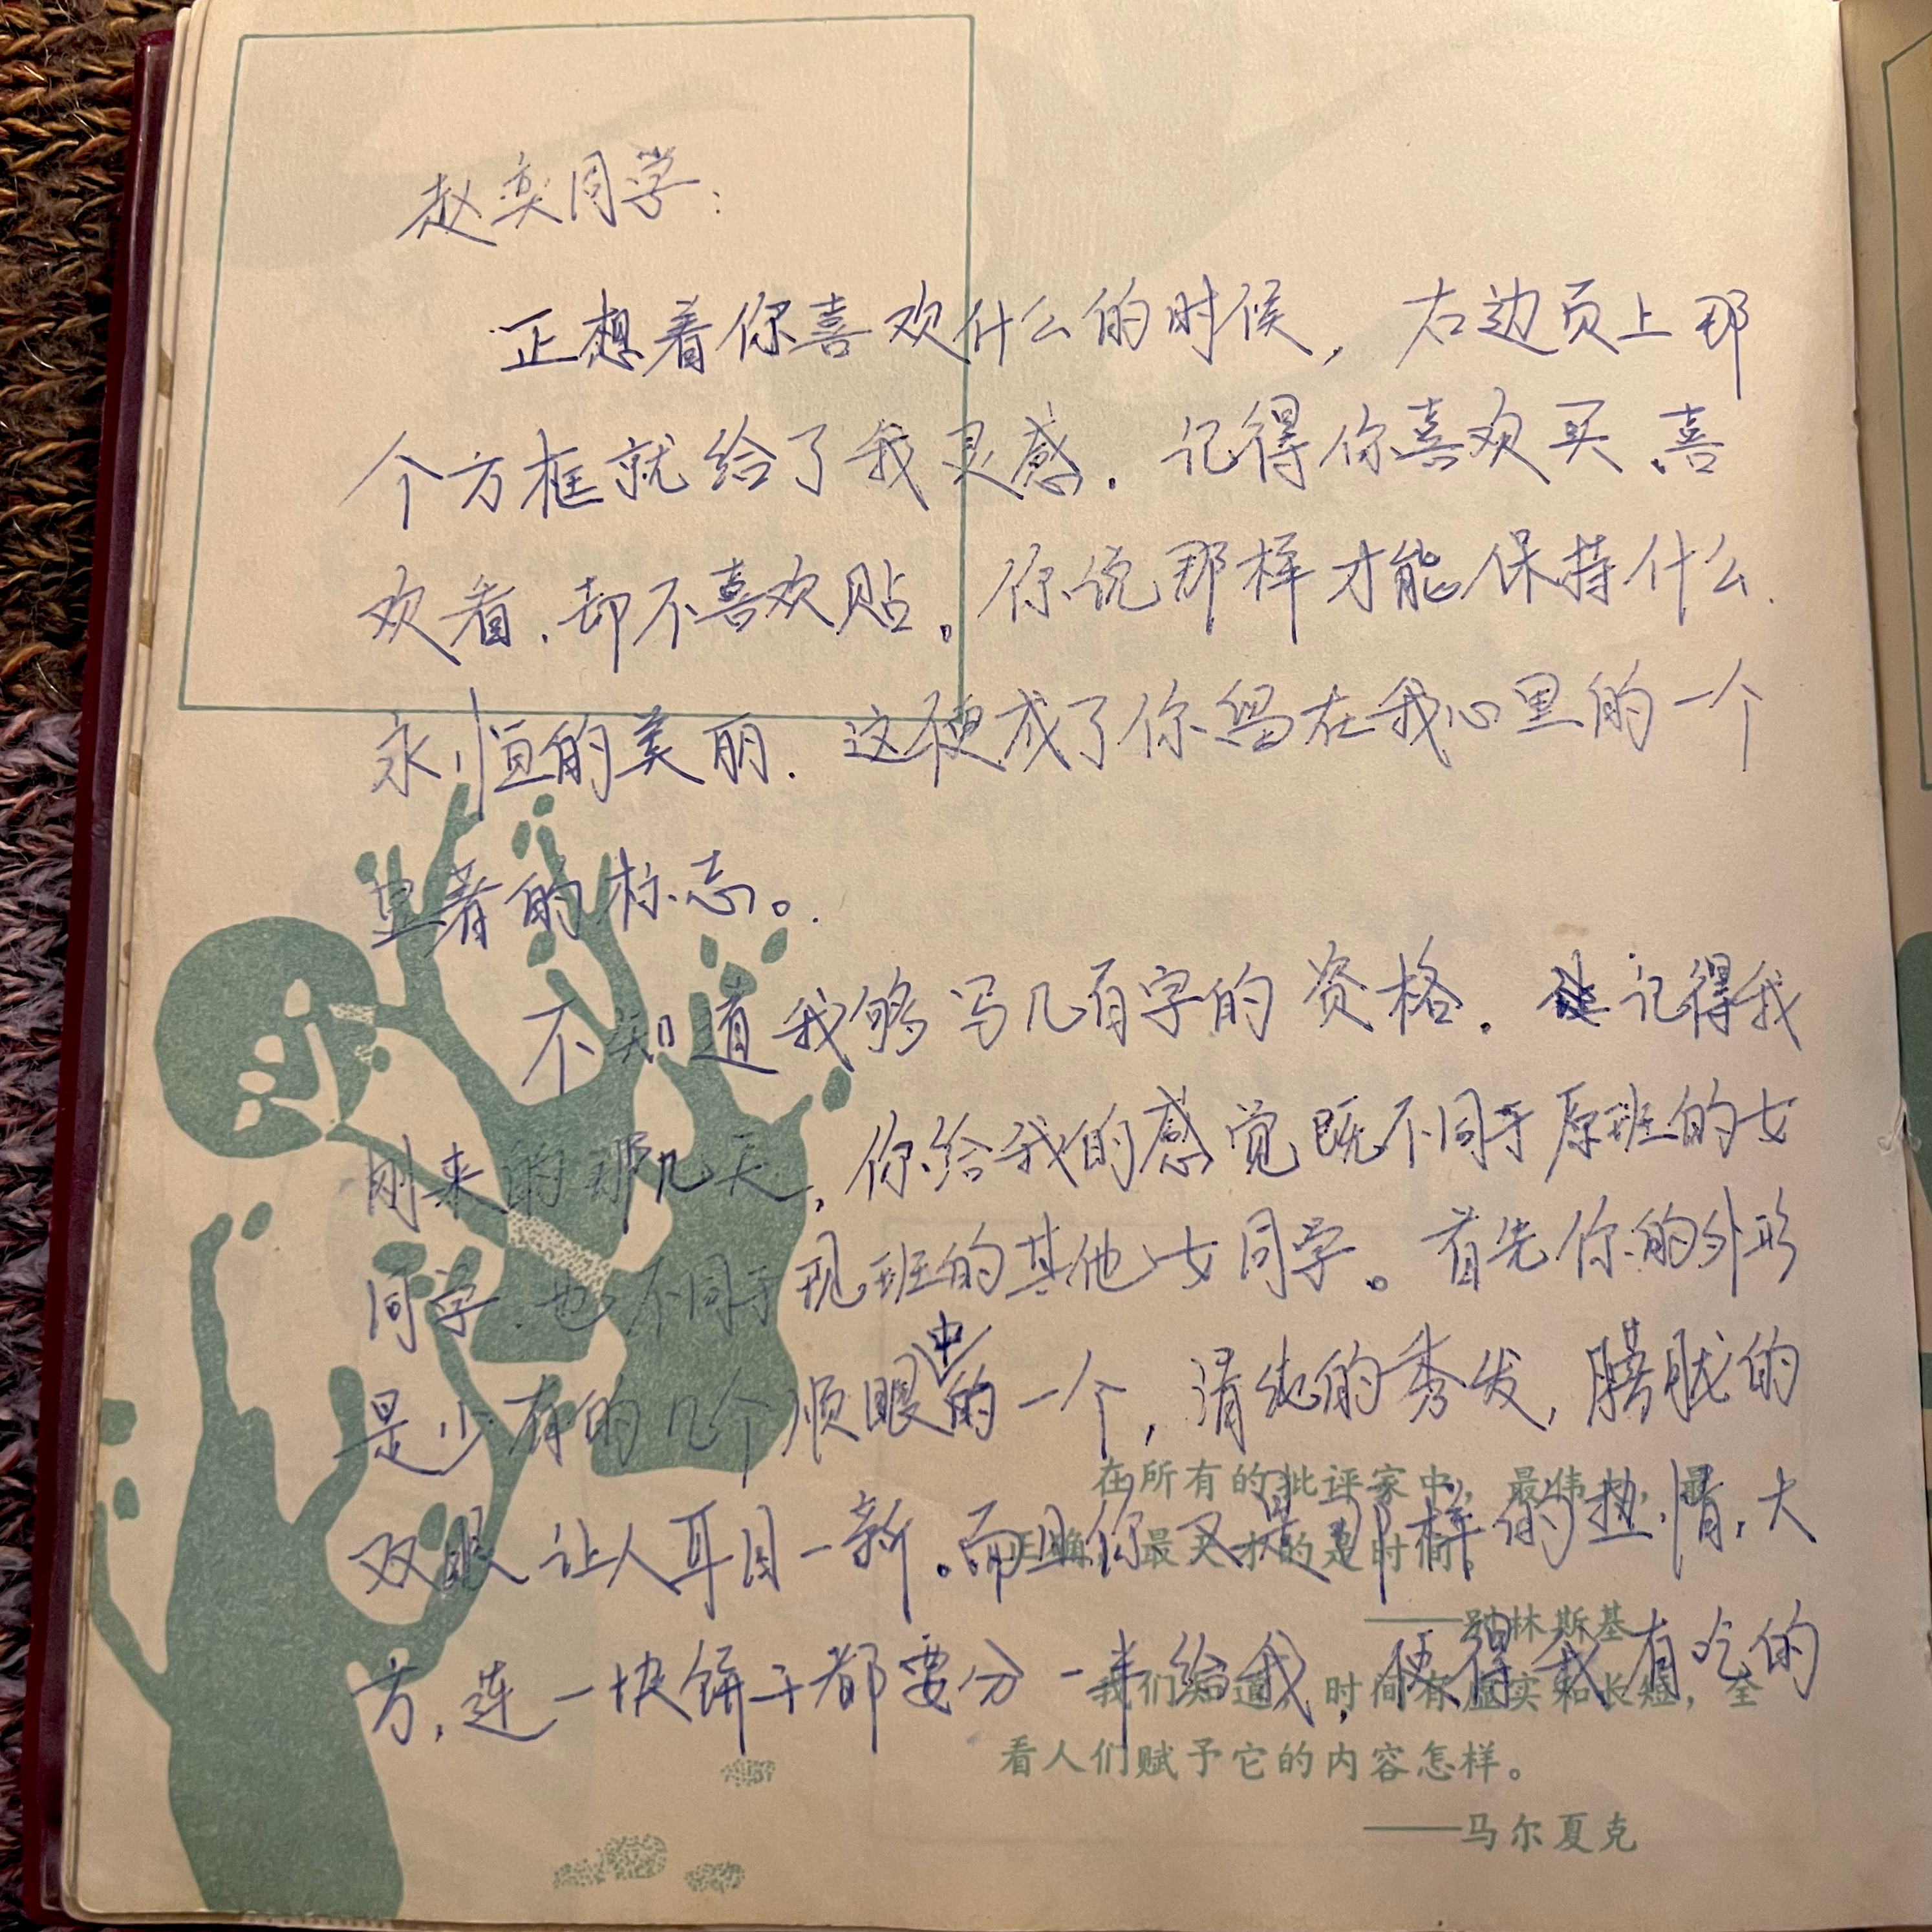 赵奕同学：
正想着你喜欢什么的时候，右边页上那
个方框就给了我灵感．记得你喜欢买、喜
欢看．却不喜欢贴。你说那样才能保持什么
永恒的美丽．这便成了你留在我心里的一个
显著的标志。
不知道我够写几百字的资格．记得我
刚来的那几天，你给我的感觉既不同于原班的女
同学．也不同于现班的其他女同学。首先你的外形
是少有的几个顺眼中的一个，清纯的秀发，朦胧的
双眼让人耳目一新。而且你又是那样的热情，大
方，连一块饼干都要分一半给我，使得我有吃的
在所有的批评家中，最伟大，最
正确，最天才的是时间。
——别林斯基
我们知道，时间有虚实和长短，全
看人们赋予它的内容怎样。
——马尔夏克